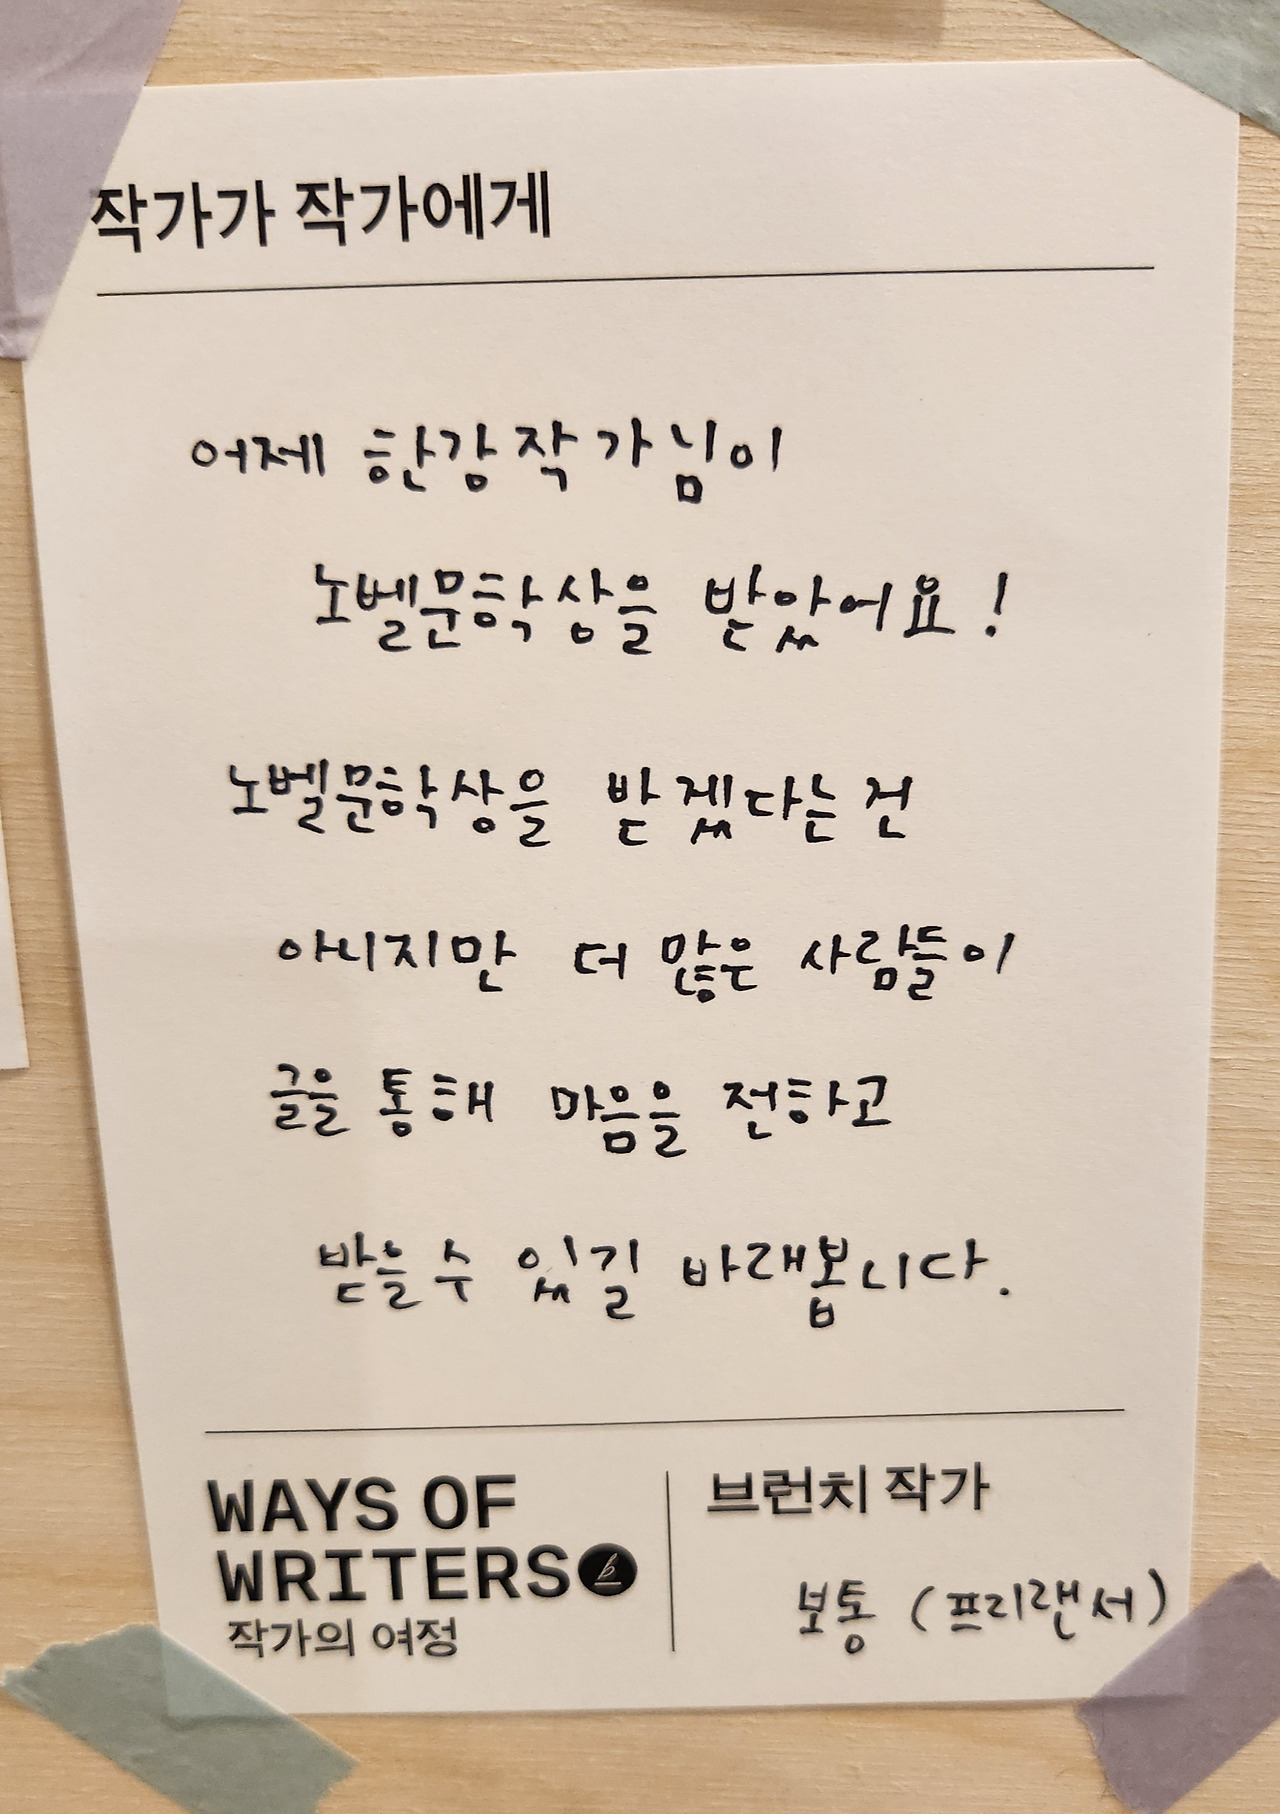 작가가 작가에게
어제 한강작가님이
노벨문학상을 받았어요!
노벨문학상을 받겠다는건
아니지만 더 많은 사람들이
글을 통해 마음을 전하고
받을 수 있길 바래봅니다.
WAYS OF
WRITERS
작가의 여정
브런치 작가
보통 (프리랜서)